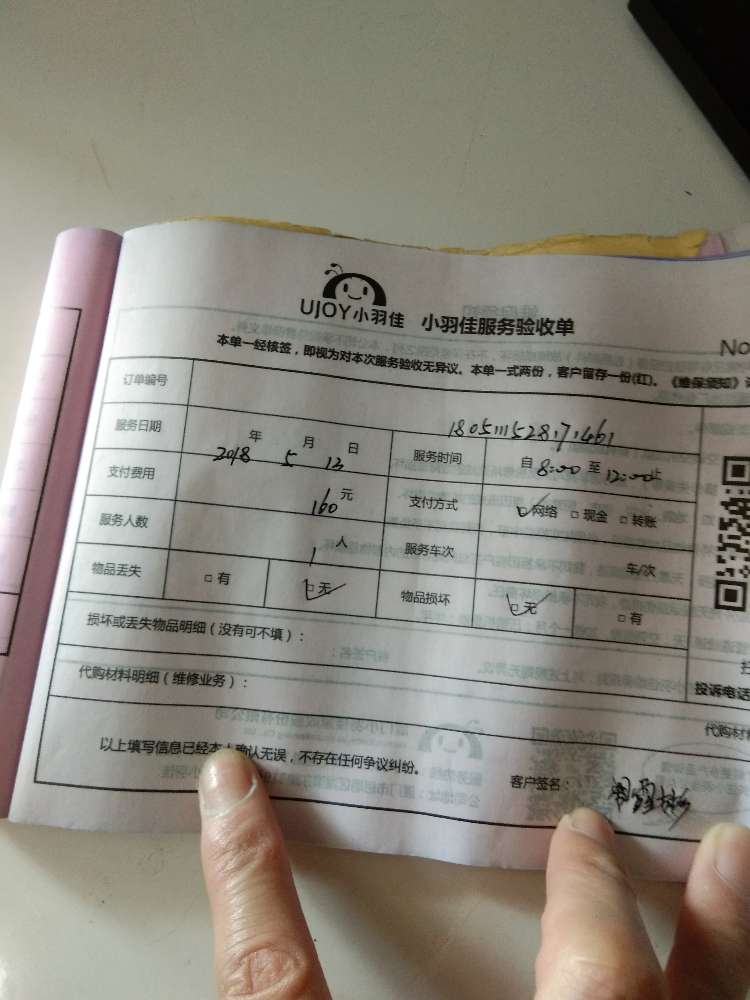 UJOY小羽佳 小羽佳服务验收单
No
本单一经核签，即视为对本次服务验收无异议。本单一式两份，客户留存一份(红)。《维保须知》
订单编号
服务日期 2018年 5月 12日 服务时间 自 8:00 至 12:00止
支付费用 160元 支付方式 □网络 □现金 □转账
服务人数 1人 服务车次 车/次
物品丢失 □有 □无 物品损坏 □无 □有
损坏或丢失物品明细（没有可不填）：
投诉电话
代购材料明细（维修业务）：
代购材料
以上填写信息已经本人确认无误，不存在任何争议纠纷。
客户签名：